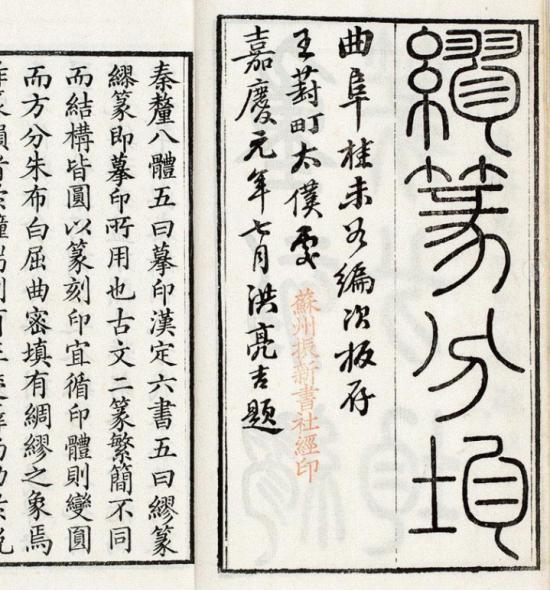 繆篆分均
曲阜桂未谷編次板存
王葑町太僕處
嘉慶元年七月洪亮吉題
蘇州振新書社經印
秦釐八體五曰摹印漢定六書五曰繆篆
繆篆即摹印所用也古文二篆繁簡不同
而結構皆圓以篆刻印宜循印體則變圓
而方分朱布白屈曲密填有綢繆之象焉